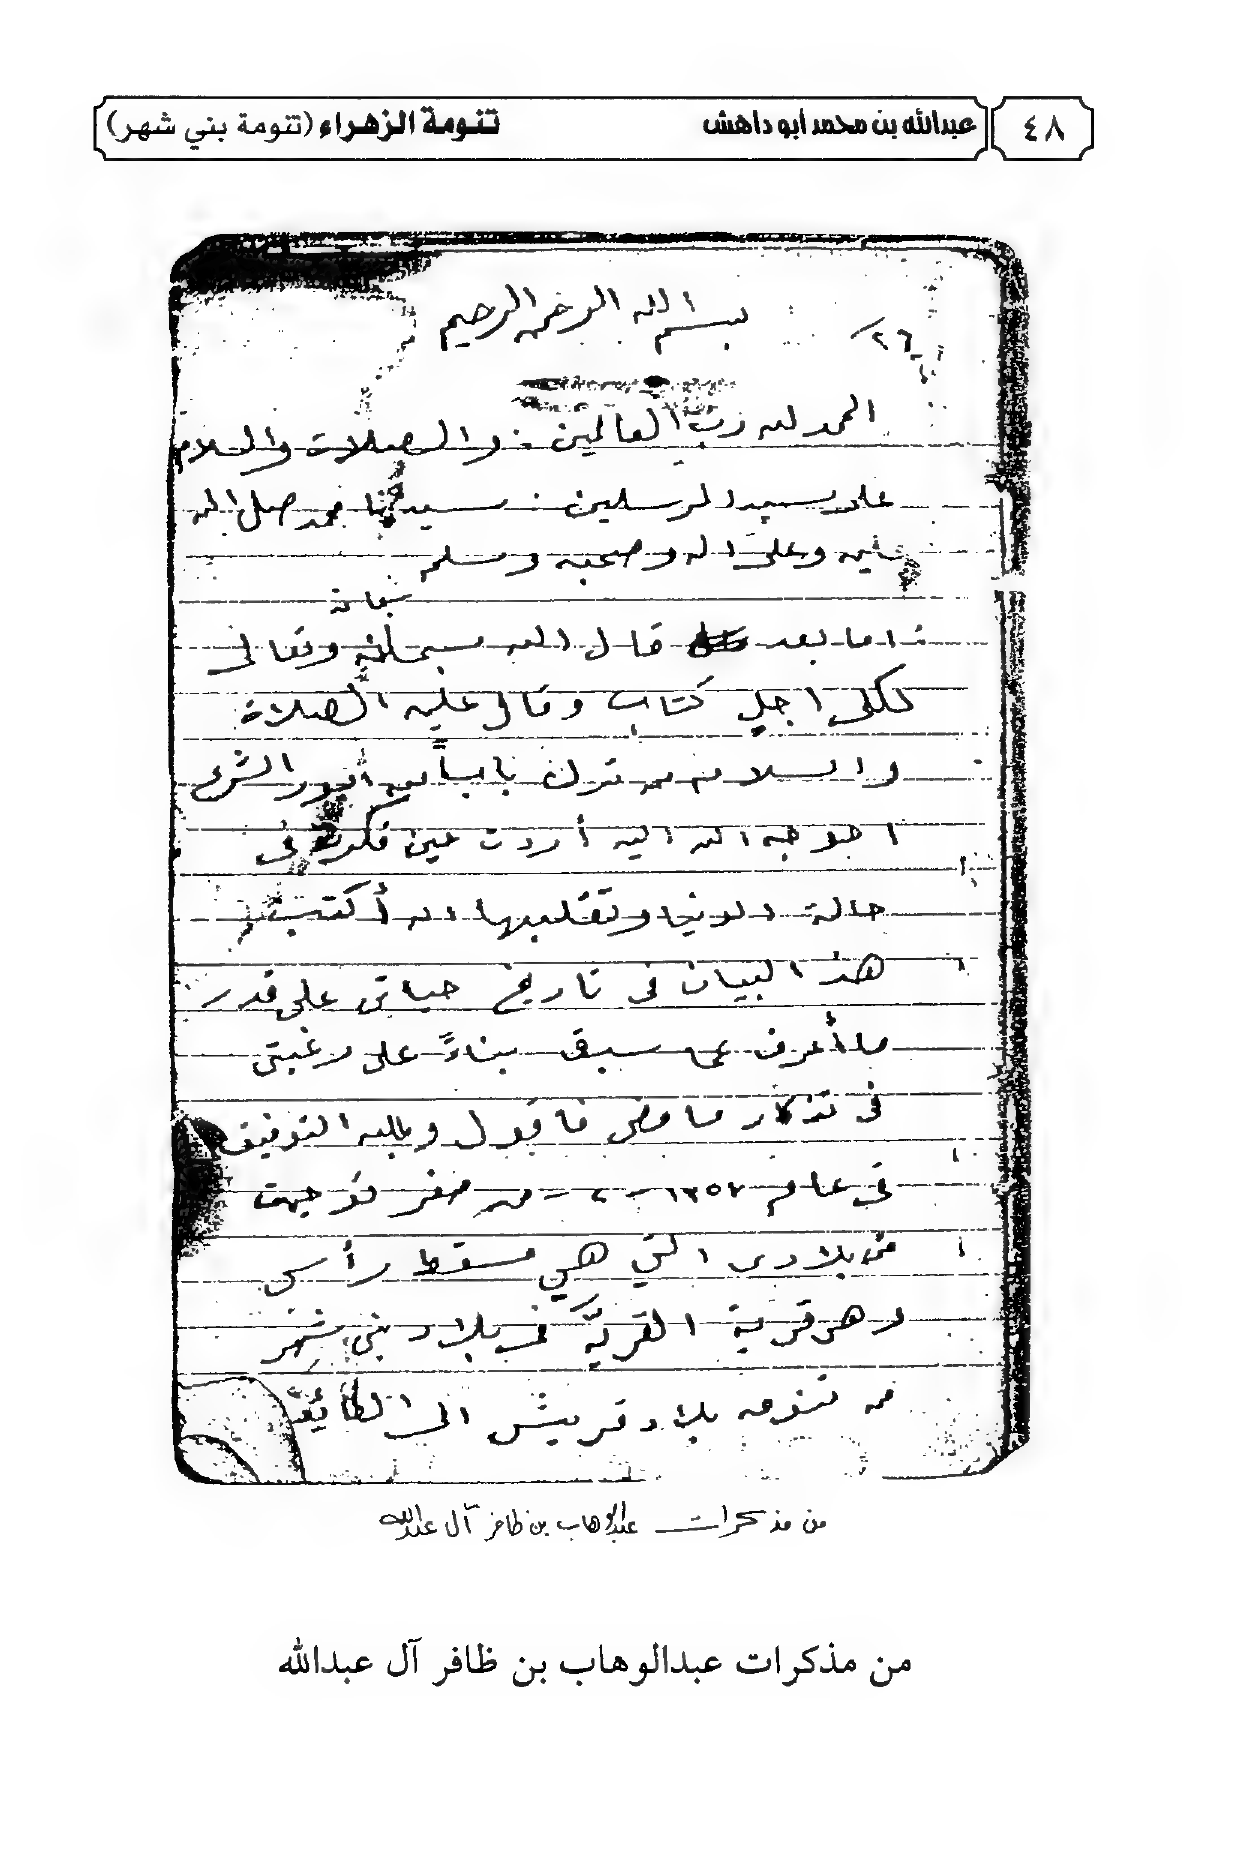 ٤٨
عبدالله بن محمد أبو داهش
تنومة الزهراء (تنومة بني شهر)
بسم الله الرحمن الرحيم
الحمد لله رب العالمين : والصلات والسلام
على سيد المرسلين : سيدنا محمد صلى الله
عليه وعلى اله وصحبه وسلم
سبحانه
اما بعد قال الله سبحانه وتعالى
لكل اجل كتاب وقال عليه الصلاة
والسلام من ترك باباً من أمور الشرع
احوجه الله اليه أردت حين فكرت في
حالة الدنيا وتقلبها ان أكتب
هذ البيان في تاريخ حياتي على قدر
ما أعرف عما سبق بناءً على رغبتي
في تذكار ما مضى فاقول وبالله التوفيق
في عام ١٣٥٧ - ٧ - من صفر توجهت
من بلادي التي هي مسقط رأسي
وهي قرية القريّة في بلاد بني شهر
من تنومه بلاد قريش الى الطائف
من مذكرات عبدالوهاب بن ظافر آل عبدالله
من مذكرات عبدالوهاب بن ظافر آل عبدالله